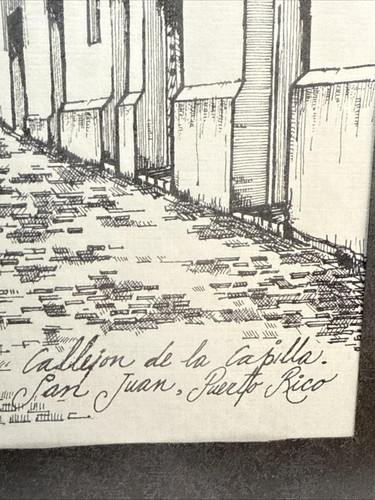 Callejon de la Capilla.
San Juan, Puerto Rico